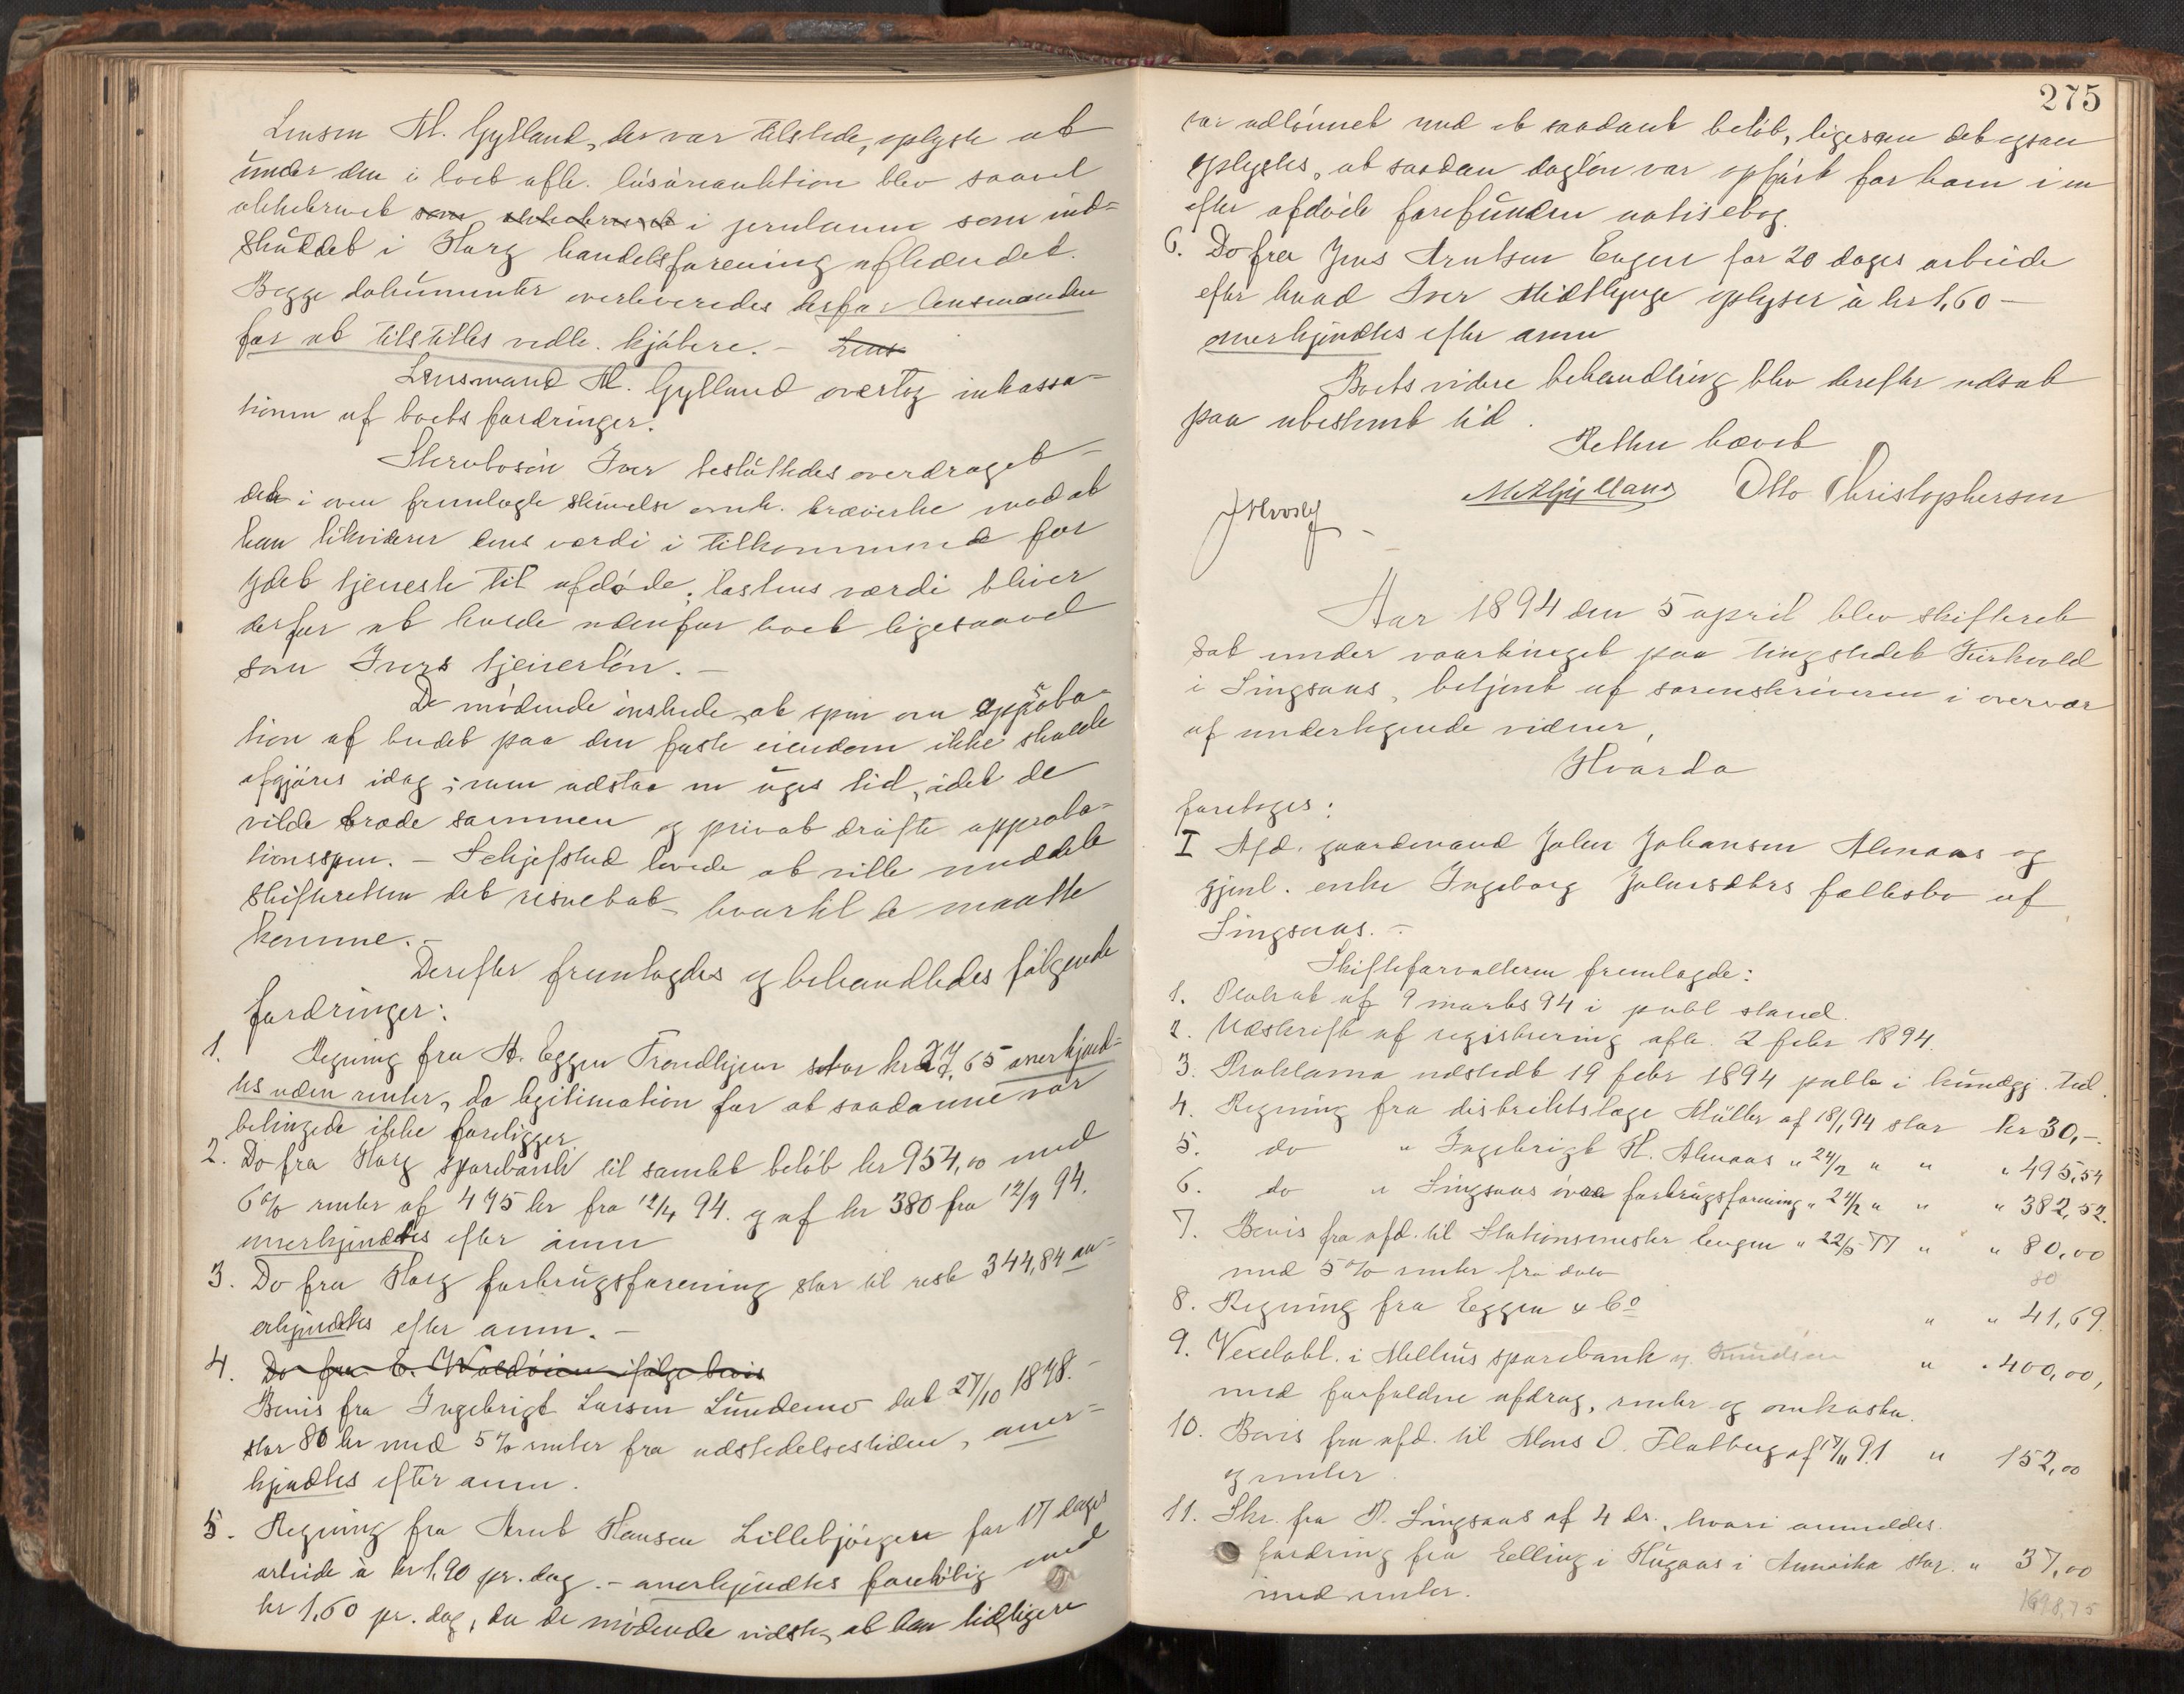 Lensm M. Gylland, der var tilstede, oplyste at
under den i boet afh. løsøreauktion blev saavel
aktiebrevet som aktiebrevet i  som ind-
skuddet i Horg handelsforening afhændet.
Begge dokumenter overleveredes derfor lensmanden
for at tilstilles vedk. kjøbere. – Lens
Lensmand M. Gylland overtog inkassa-
tionen af boets fordringer.
 Iver besluttedes overdraget
det i oven fremlagte skrivelse omh. træverke mod at
han likviderer dens værdi i tilkommende for
ydet tjeneste til afdøde; lastens værdi bliver
derfor at holde udenfor boet ligesaavel
som Ivers tjenerløn. –
De mødende ønskede, at spm om approba-
tion af budet paa den faste eiendom ikke skulde
afgjøres idag; men udstaa en uges tid, idet de
vilde træde sammen og privat drøfte approba-
tionsspm. – Schjefstad lovede at ville meddele
skifteretten det resultat, hvortil de maatte
komme. –
Derefter fremlagdes og behandledes følgende
fordringer:
1. Regning fra H. Eggen Trondhjem stor kr 27,65 anerkjend-
tes uden renter, da legitimation for at saadanne var
betingede ikke foreligger
2. Do fra Horg sparebank til samlet beløb kr 954,00 med
6% renter af 475 kr fra 12/4 94. og af kr 380 fra 12/9 94.
anerkjendtes efter anm
3. Do fra Horg forbrugsforening stor til rest 344,84 an-
erkjendtes efter anm. –
4. Do fra E. Woldøien ifølge bevis
Bevis fra Ingebrigt Larsen Lundemo dat 27/10 1878. –
stor 80 kr med 5% renter fra udstedelsestiden, aner-
kjendtes efter anm.
5. Regning fra Arnt Hansen Lillebjørgen for 17 dages
arbeide à kr 1,90 pr. dag. – anerkjendtes foreløbig med
kr 1,60 pr. dag, da de mødende vidste, at han tidligere
275
var udlønnet med et saadant beløb, ligesom det ogsaa
oplystes, at saadan dagløn var opført for ham i en
efter afdøde forefunden notisebog.
6. Do fra Jens Arntsen Engen for 20 dages arbeide
efter hvad Iver Midtlynge oplyser à kr 1,60 –
anerkjendtes efter anm
Boets videre behandling blev derefter udsat
paa ubestemt tid.
Retten hævet
M Gylland Otto Christophersen
Aar 1894 den 5 april blev skifteret
sat under vaartinget paa tingstedet Kirkvold
i Singsaas, betjent af sorenskriveren i overvær
af undertegnede vidner,
Hvorda
foretoges:
I Afd. gaardmand John Johansen Almaas og
gjenl. enke Ingeborg Johnsdtrs fællesbo af
Singsaas. –
Skifteforvalteren fremlagde:
1. Plakat af 9 marts 94 i publ stand.
2. Udskrift af registrering afh. 2 febr 1894.
3. Proklama udstedt 19 febr 1894 publ i kundgj. tid.
4. Regning fra distriktslæge Müller af 18/1 94 stor kr 30,–.
5. do " Ingebrigt H. Almaas " 24/2 " " " 495,54
6. do " Singsaas øvre forbrugsforening " 24/2 " " " 382,52.
7. Bevis fra afd. til Stationsmester Engen " 22/5 77 " " 80,00
med 5% renter fra dato
80
8. Regning fra Eggen & Co " " 41,69.
9. Vexelobl. i Melhus sparebank  " " 400,00,
med forfaldne afdrag, renter og omkostn.
10. Bevis fra afd. til Mons O. Flatberg af 17/11 91 " 152,00
og renter.
11. Skr. fra P. Singsaas af 4 ds., hvori anmeldes.
fordring fra Elling i Hugaas i Amerika stor. " 37,00
med renter.
1698,75